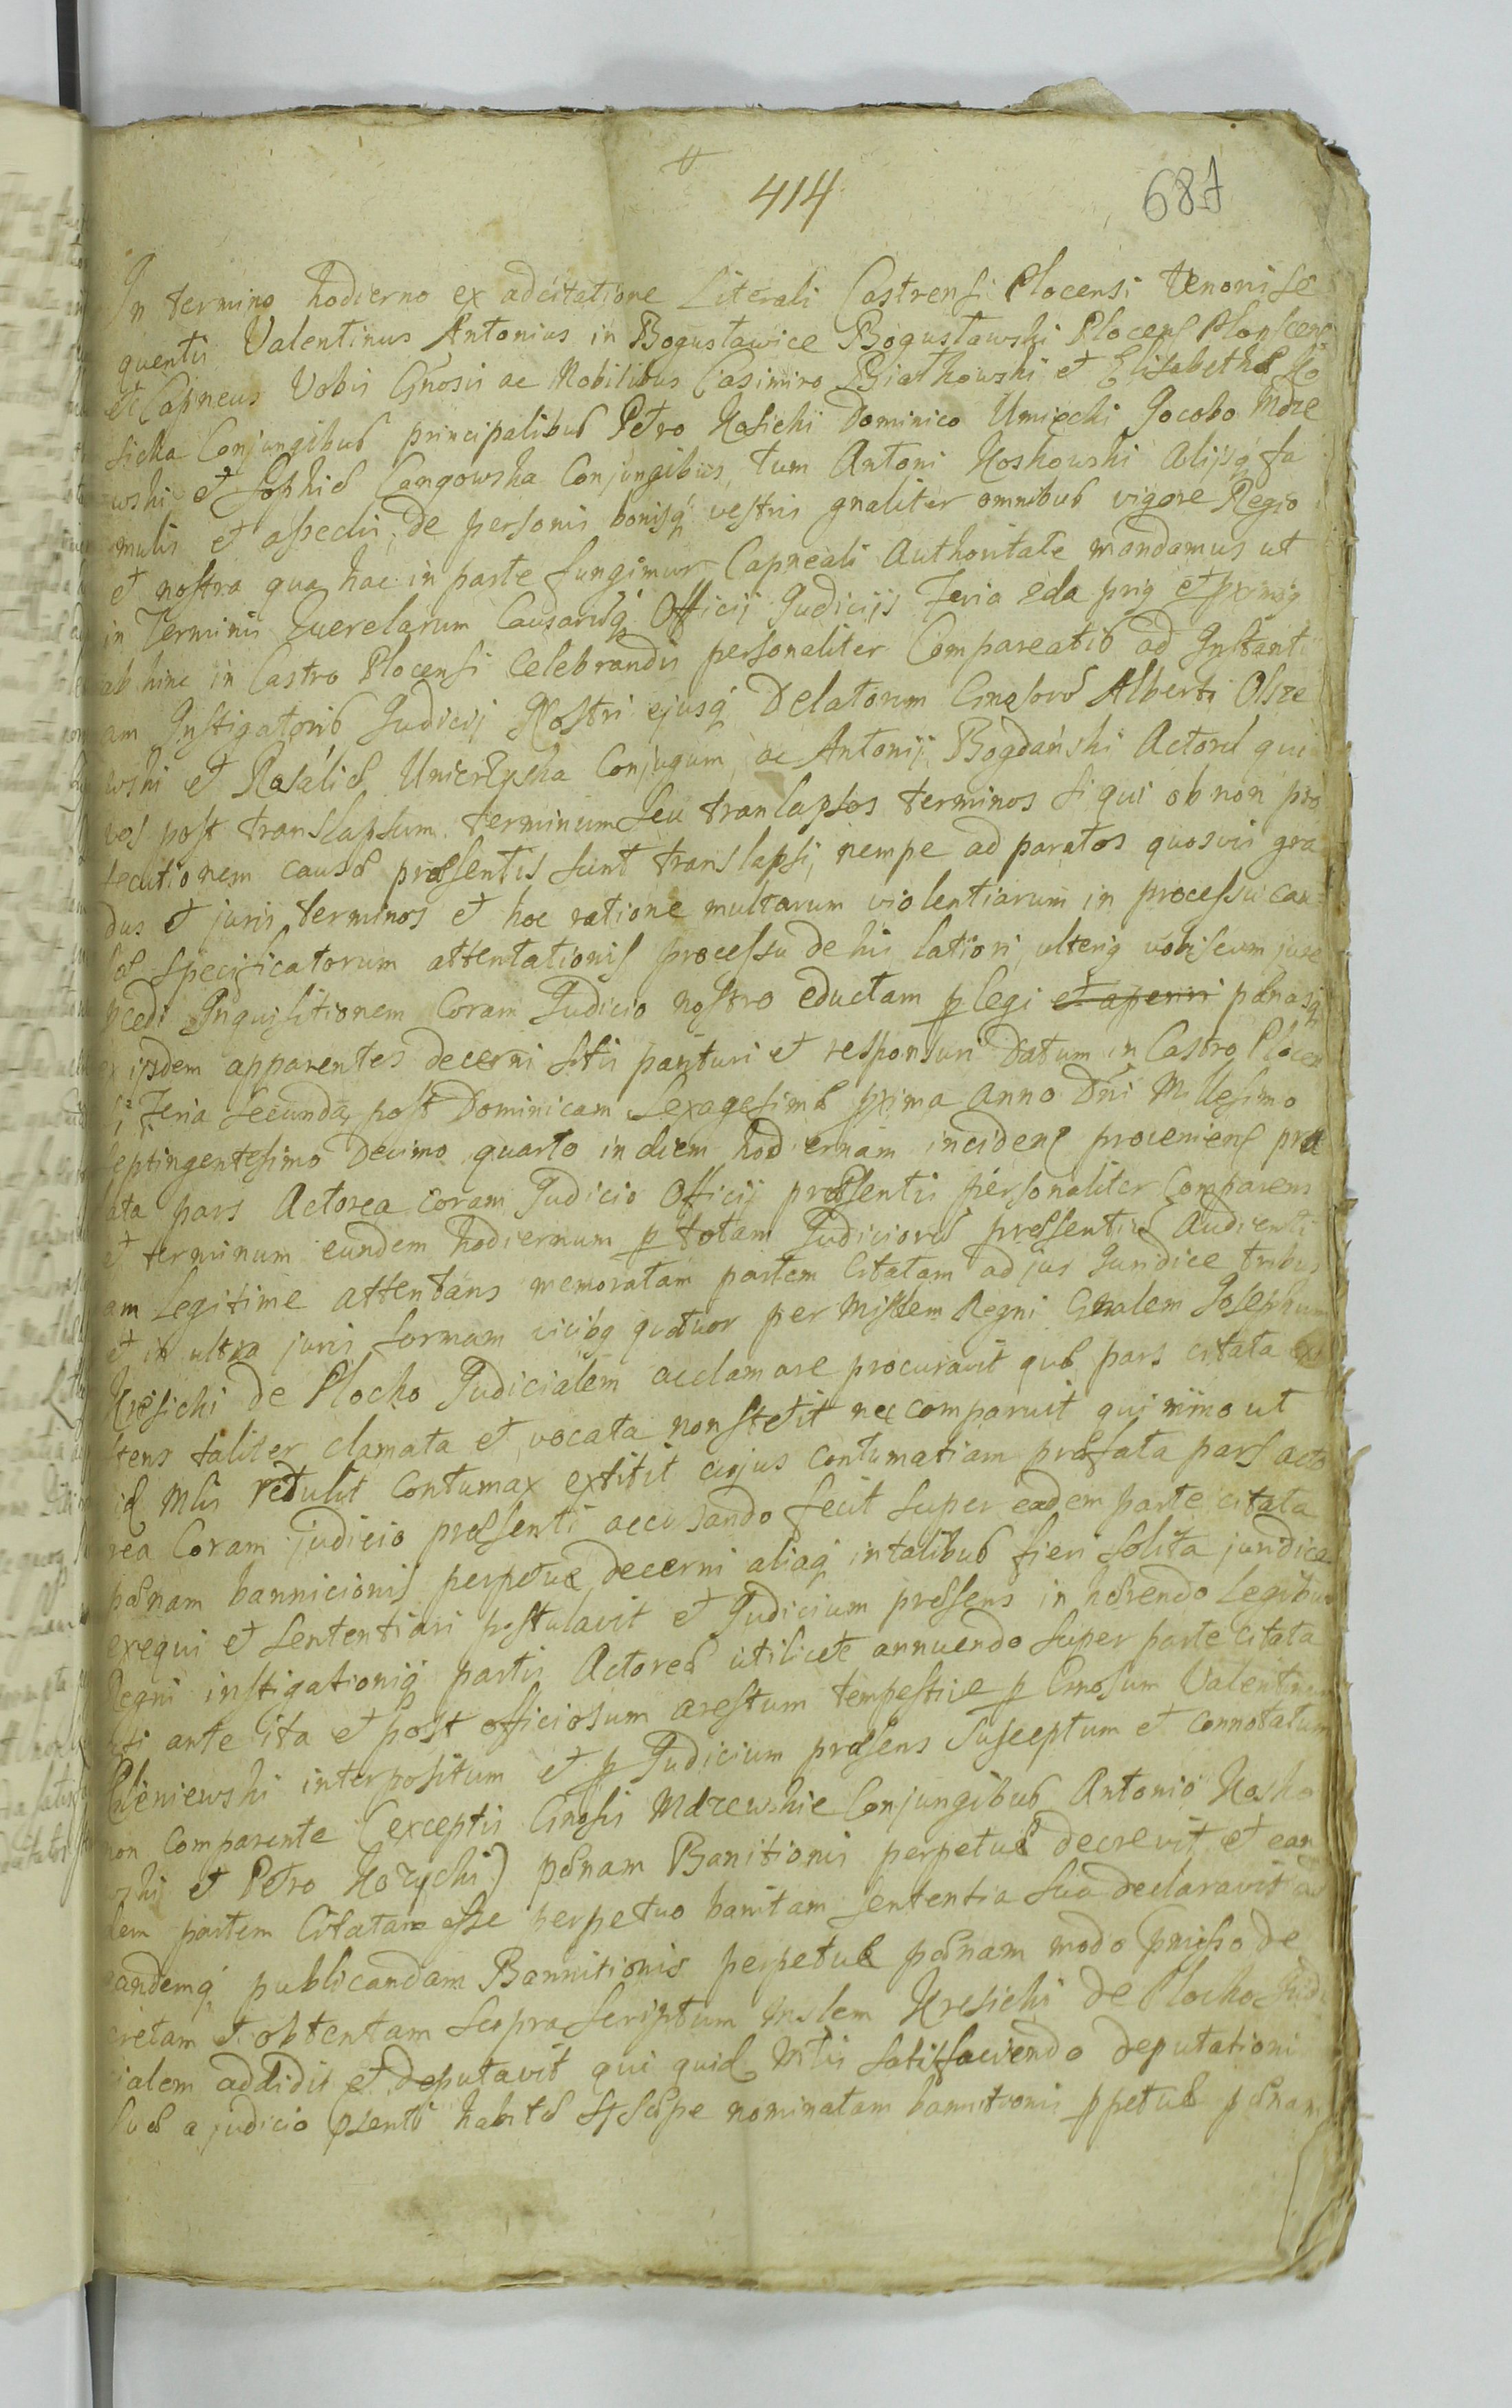 414
687
In termino hodierno ex adcitatione Literali Castrensi Plocensi tenoris se
quentis Valentinus Antonius in Bogusławice Bogusławski Plocens Plonscens
etc Capneus Vobis Gnosis ac Nobilibus Casimiro Białkowski et Elisabetha Ko
sicka Conjungibus principalibus Petro Kosicki Dominico Umięcki Jocobo Mdze
wski et Sophia Cangowska Conjungibus, tum Antoni Koskowski Alijsq fa
mulis et asseclis, de personis bonisq vestris gnaliter omnibus vigore Regio
et nostra qua hac in parte fungimur Capneali Authoritate mandamus ut
in Terminis Querelarum Causarūq Officij Judicijs Feria 2da prig et pximis
ab hinc in Castro Plocensi Celebrandis personaliter Compareatis ad Instanti
am Instigatoris Judicij Nostri ejusq Delatorum Gnosorū Alberti Olsze
wski et Rosalia Umierzyska Conjugum, ac Antonij Bogdański Actorū qui
vos post translapsum terminum seu tranlapsos terminos si qui ob non pro
secutionem causæ præsentis sunt translapsi, nempe ad paratos quosvis gra
dus et juris terminos et hoc ratione multarum violentiarum in processu cau
sæ specificatorum attentationis processu de his latiori, ulterig vobiscum jure
pcedi Inquisitionem Coram Judicio nostro eductam plegi et aperiri pænasq
ex ijsdem apparentes decerni sitis parituri et responsuri Datum in Castro Plocen
si Feria Secunda post Dominicam Sexagesimæ pxima Anno Dni Millesimo
septingentesimo Decimo quarto in diem hodiernam incidens proveniens præ
lata pars Actorea coram Judicio Officij præsentis personaliter Comparens
et terminum eundem hodiernum p totam Judiciorū præsentiū Audienti
am Legitime attentans memoratam partem Citatam ad jus Juridice tribus
et in ultra juris formam vicibq quatuor per Mistlem Regni Gnalem Josephum
Kresicki de Plocko Judicialem acclamare procuravit quæ pars citata ex
stens taliter clamata et vocata non stetit nec comparuit qui nimo ut
id Mlis retulit Contumax extitit cujus contumatiam præfata pars acto
rea Coram judicio præsenti accusando fecit super eadem parte citata
pænam bannicionis perpetuæ decerni aliaq in talibus fieri solita juridice
exequi et sententiari postulavit et Judicium præsens in hærendo Legibus
Regni instigationiq partis Actoreæ utilicet annuendo super parte Citata
uti ante ita et post officiosum arestum tempestive p Gnosum Valentinum
Pleniewski interpositum et p Judicium præsens Susceptum et connotatum
non comparente (exceptis Gnosis Mdzewskie Conjungibus Antonio Kosko
wski et Petro Kozycki) pænam Banitionis perpetuæ decrevit et ean
dem partem Citatam esse perpetuo banitam sententia sua declaravit ad
eandemq publicandam Bannitionis perpetuæ pænam modo pmisso de
cretam et obtentam supra scriptum Mslem Kresicki de Plocko Judi
cialem addidit et deputavit qui quid Mlis satisfaciendo deputationi
suæ a judicio psenti habitæ sæpe nominatam bannitionis ppetuæ pænam